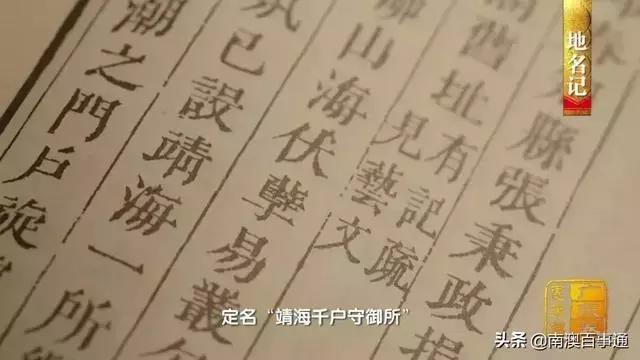 地名记
縣張秉政捐
舊址有記疏
見藝文
山海伏孽易叢
氛已設靖海一所
潮之門戶旋
定名“靖海千户守御所”
头条 @南澳百事通